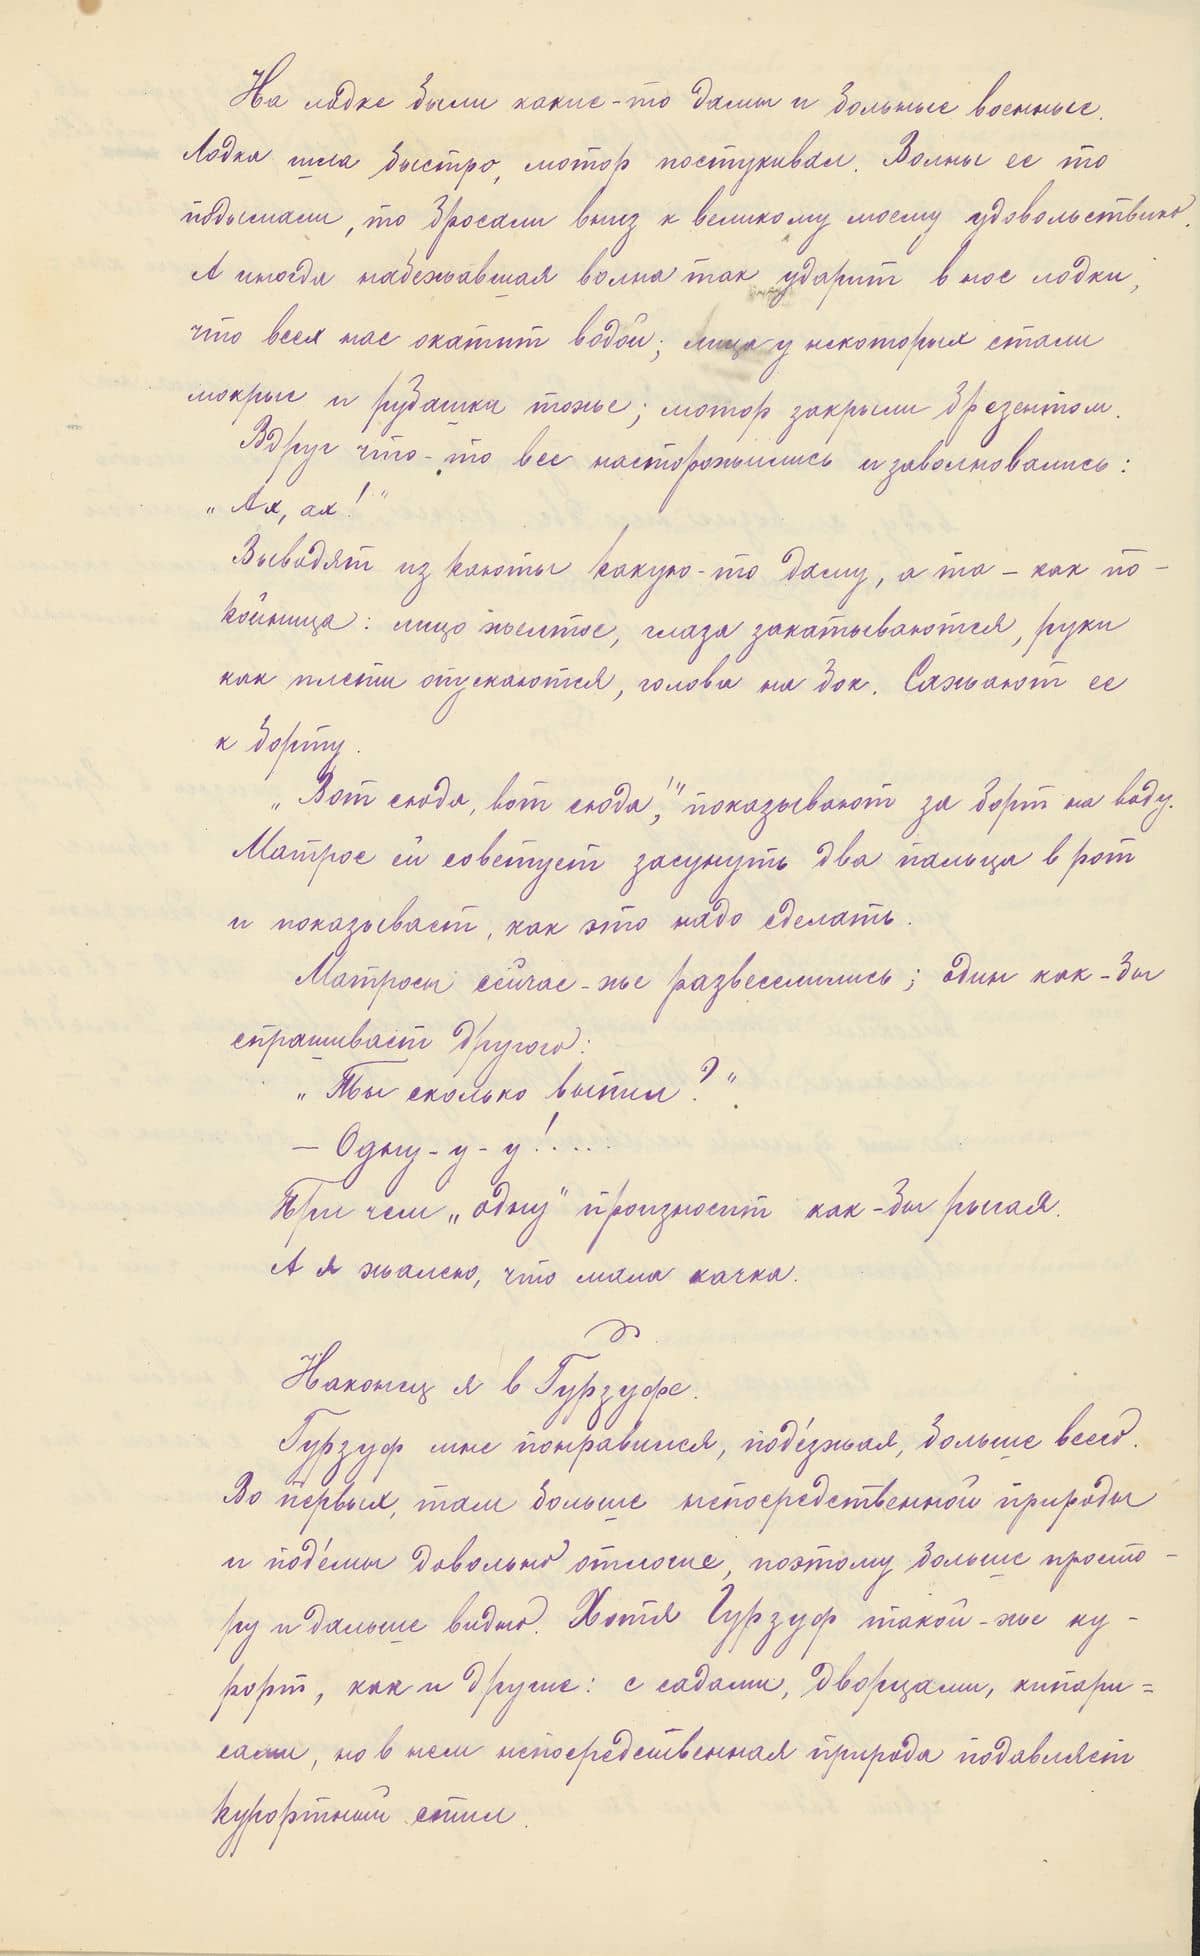 На лодке были какие-то дамы и больные военные.
Лодка шла быстро, мотор постукивал. Волны ее то
подымали, то бросали вниз к великому моему удовольствию.
А иногда набежавшая волна так ударит в нос лодки,
что всех нас окатит водой; лица у некоторых стали
мокрые и рубашка тоже; мотор закрыли брезентом.
Вдруг что-то все насторожились и заволновались:
„Ах, ах!“
Выводят из каюты какую-то даму, а та – как по-
койница: лицо желтое, глаза закатываются, руки
как плети опускаются, голова на бок. Сажают ее
к борту.
„Вот сюда, вот сюда!“, показывают за борт на воду.
Матрос ей советует засунуть два пальца в рот
и показывает, как это надо сделать.
Матросы сейчас-же развеселились; один как-бы
спрашивает другого:
„Ты сколько выпил?“
– Одну-у-у!....
При чем „одну“ произносит как-бы рыгая.
А я жалею, что мала качка.
Наконец я в Гурзуфе.
Гурзуф мне понравился, под'езжая, больше всего.
Во первых, там больше непосредственной природы
и под'емы довольно отлогие, поэтому больше просто-
ру и дальше видно. Хотя Гурзуф такой-же ку-
рорт, как и другие: с садами, дворцами, кипари=
сами, но в нем непосредственная природа подавляет
курортный стиль.